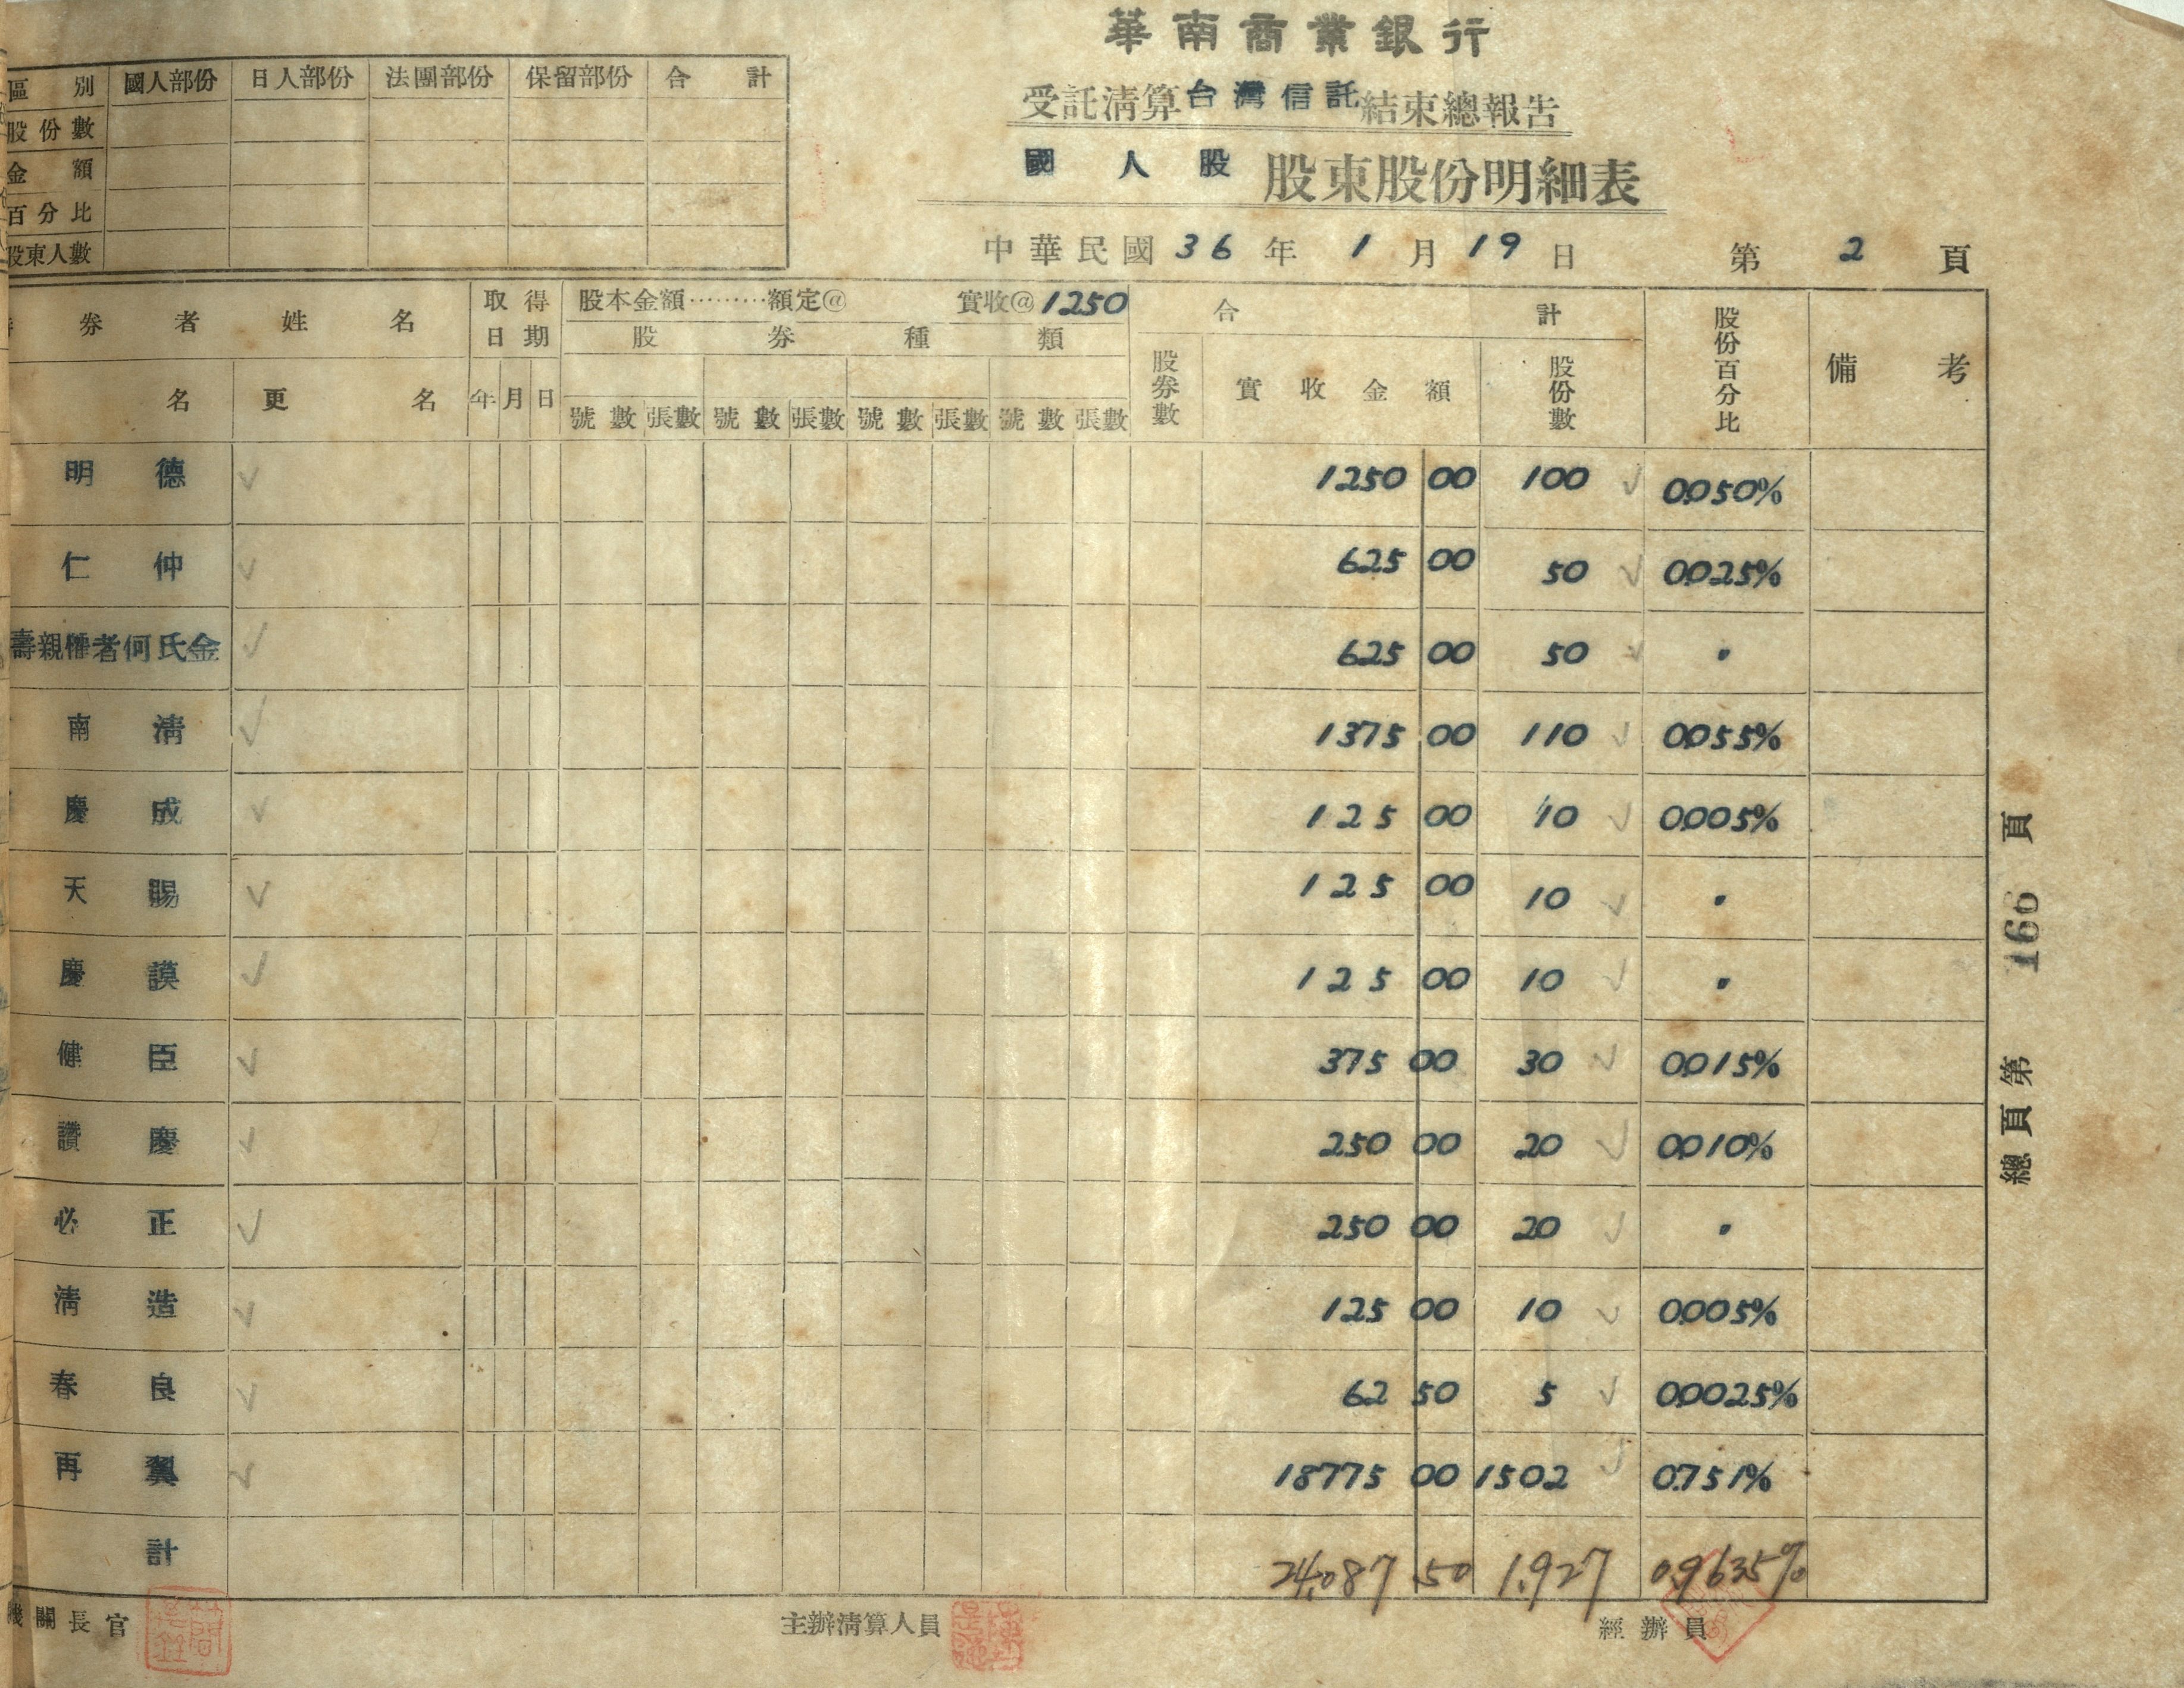 華南商業銀行
受託清算台灣信託結束總報告
國人股 股東股份明細表
中華民國36年1月19日 第2頁
區別 國人部份 日人部份 法團部份 保留部份 合計
股份數
金額
百分比
股東人數
券者姓名 取得日期 股本金額………額定@ 實收@1250 合計 股份百分比 備考
股券種類
名 更名 年 月 日 號數 張數 號數 張數 號數 張數 號數 張數 股券數 實收金額 股份數
明德 ✓ 1250 00 100 ✓ 0.050%
仁仲 ✓ 625 00 50 ✓ 0.025%
壽親權者何氏金 ✓ 625 00 50 ✓ 〃
南清 ✓ 1375 00 110 ✓ 0.055%
慶成 ✓ 125 00 10 ✓ 0.005%
天賜 ✓ 125 00 10 ✓ 〃
慶謨 ✓ 125 00 10 ✓ 〃
健臣 ✓ 375 00 30 ✓ 0.015%
讚慶 ✓ 250 00 20 ✓ 0.010%
必正 ✓ 250 00 20 ✓ 〃
清造 ✓ 125 00 10 ✓ 0.005%
春良 ✓ 62 50 5 ✓ 0.0025%
再翼 ✓ 18775 00 1502 ✓ 0.751%
計 24,087 50 1,927 0.9635%
機關長官 主辦清算人員 經辦員
總頁第 166 頁